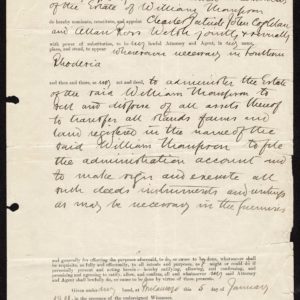 of the Estate of William Thompson
do hereby nominate, constitute, and appoint Charles Patrick John Coghlan
and Allan Ross Welsh jointly & severally
with power of substitution, to be my lawful Attorney and Agent, in my name,
wheresoever necessary in Southern
Rhodesia
and then and there, as my act and deed, to administer the Estate
of the said William Thompson to
sell and dispose of all assets thereof
to transfer all stands farms and
land registered in the name of the
said William Thompson to file
the administration account and
to make sign and execute all
such deeds instruments and writings
as may be necessary in the premises
and generally for effecting the purposes aforesaid, to do, or cause to be done, whatsoever shall
be requisite, as fully and effectually, to all intents and purposes, as I might or could do if
personally present and acting herein—hereby ratifying, allowing, and confirming, and
promising and agreeing to ratify, allow, and confirm, all and whatsoever my said Attorney
and Agent shall lawfully do, or cause to be done, by virtue of these presents.
Given under my hand, at this 5 day of January
in the presence of the undersigned Witnesses.